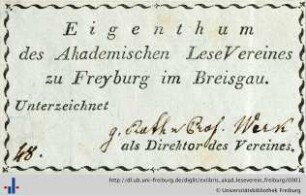 Eigenthum
des Akademischen LeseVereines
zu Freyburg im Breisgau.
Unterzeichnet
g. Rath u Prof. Werk
48. als Direktor des Vereines.
http://dl.ub.uni-freiburg.de/diglit/exlibris_akad.leseverein_freiburg/0001
© Universitätsbibliothek Freiburg